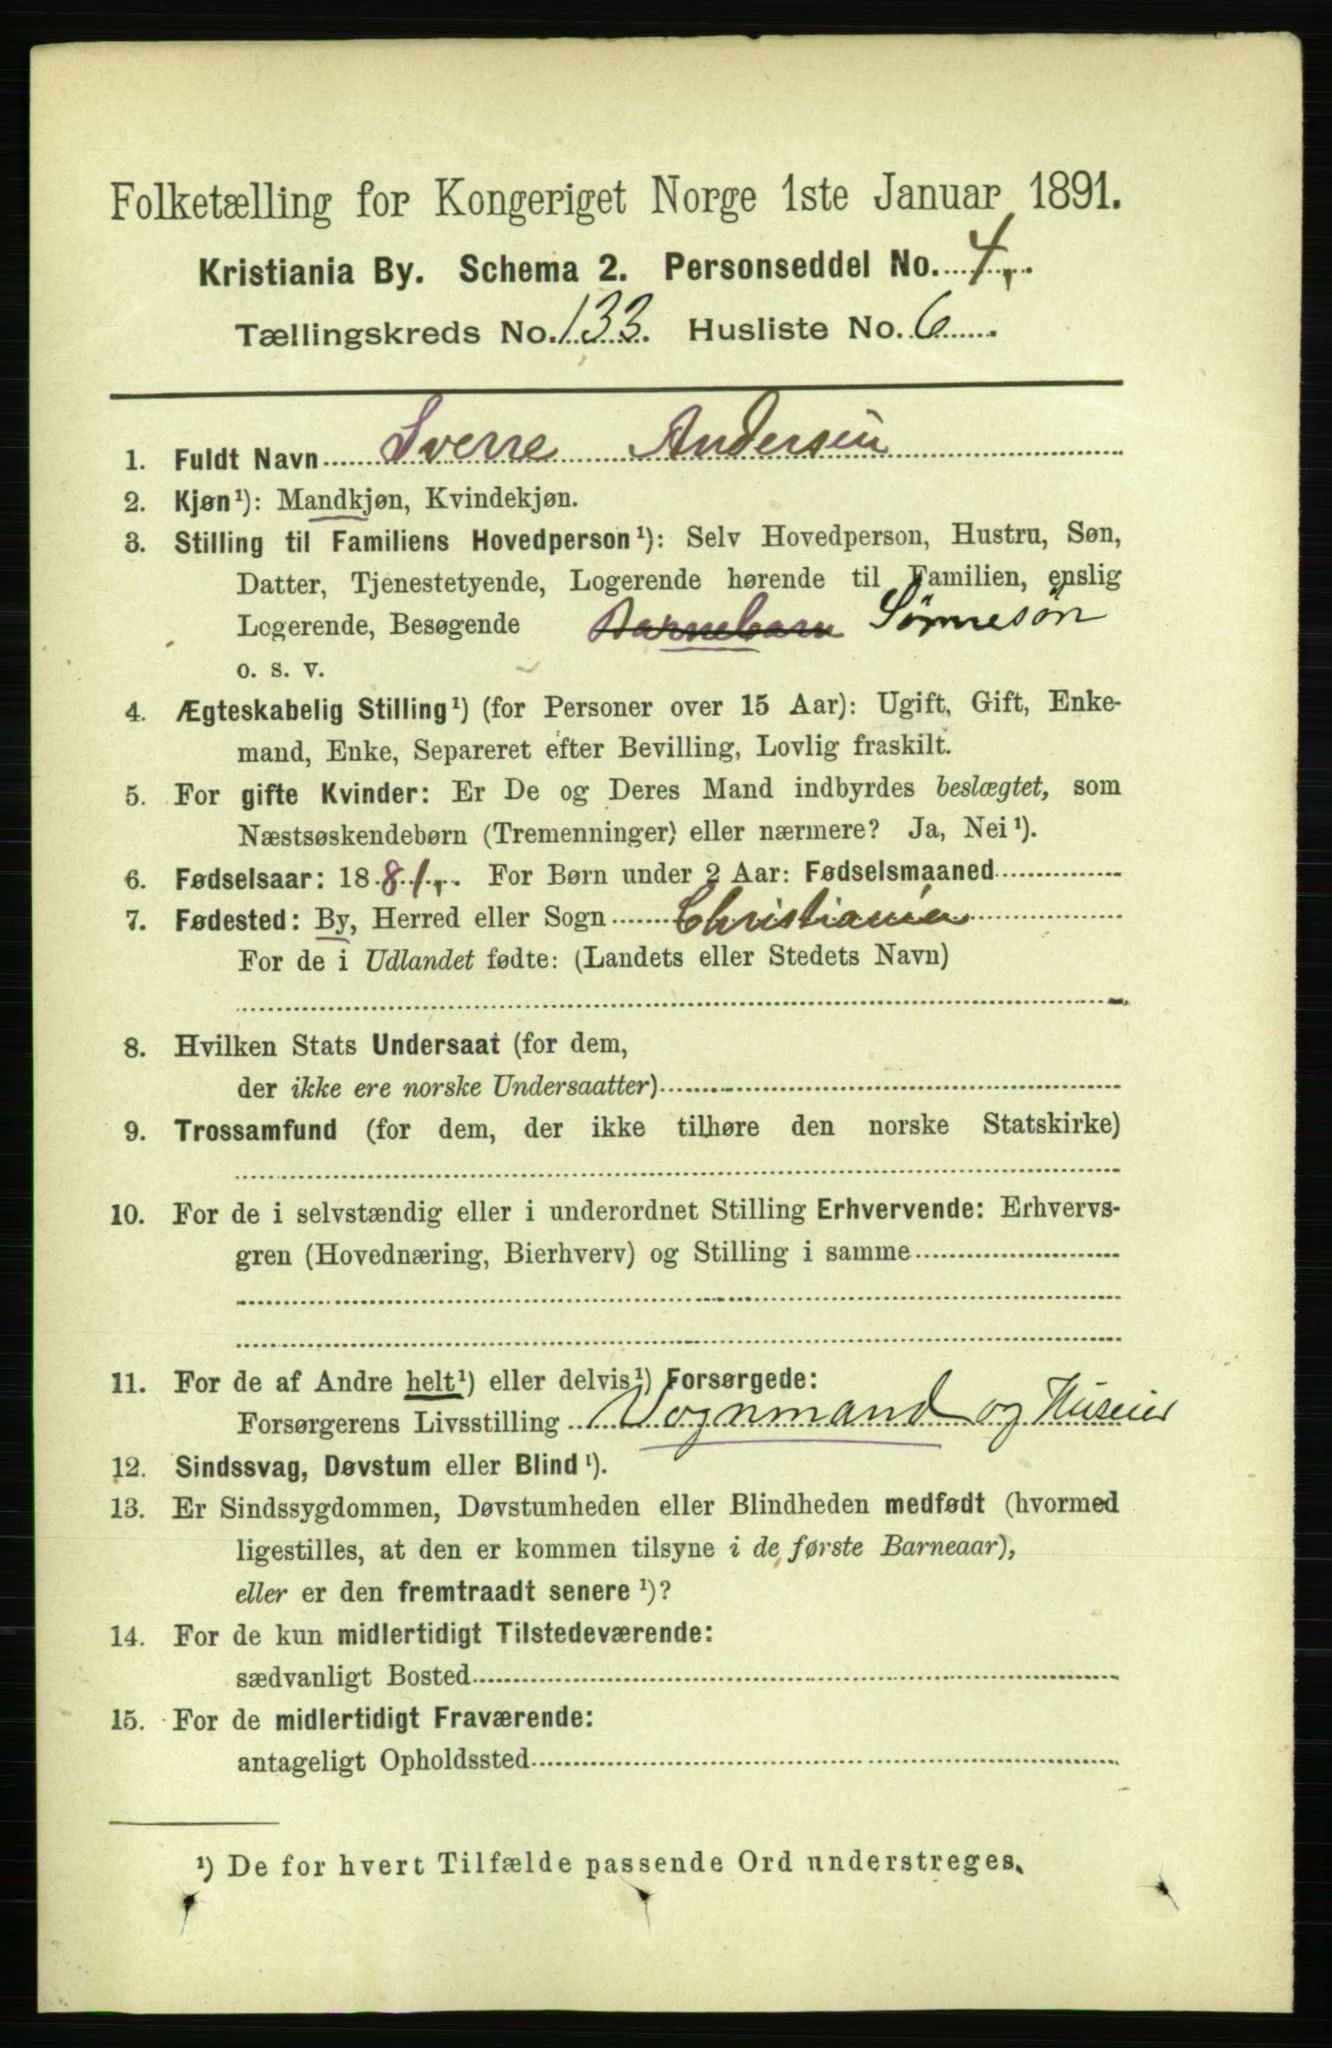 Folketælling for Kongeriget Norge 1ste Januar 1891.
Kristiania By. Schema 2. Personseddel No. 4
Tællingskreds No. 133. Husliste No. 6
1. Fuldt Navn Sverre Andersen
2. Kjøn¹): Mandkjøn, Kvindekjøn.
3. Stilling til Familiens Hovedperson¹): Selv Hovedperson, Hustru, Søn,
Datter, Tjenestetyende, Logerende hørende til Familien, enslig
Logerende, Besøgende Barnebarn Sønneson
o. s. v.
4. Ægteskabelig Stilling¹) (for Personer over 15 Aar): Ugift, Gift, Enke-
mand, Enke, Separeret efter Bevilling, Lovlig fraskilt.
5. For gifte Kvinder: Er De og Deres Mand indbyrdes beslægtet, som
Næstsøskendebørn (Tremenninger) eller nærmere? Ja, Nei¹).
6. Fødselsaar: 1881. For Børn under 2 Aar: Fødselsmaaned
7. Fødested: By, Herred eller Sogn Christiania
For de i Udlandet fødte: (Landets eller Stedets Navn)
8. Hvilken Stats Undersaat (for dem,
der ikke ere norske Undersaatter)
9. Trossamfund (for dem, der ikke tilhøre den norske Statskirke)
10. For de i selvstændig eller i underordnet Stilling Erhvervende: Erhvervs-
gren (Hovednæring, Bierhverv) og Stilling i samme
11. For de af Andre helt¹) eller delvis¹) Forsørgede:
Forsørgerens Livsstilling Vognmand og Huseier
12. Sindssvag, Døvstum eller Blind¹).
13. Er Sindssygdommen, Døvstumheden eller Blindheden medfødt (hvormed
ligestilles, at den er kommen tilsyne i de første Barneaar),
eller er den fremtraadt senere¹)?
14. For de kun midlertidigt Tilstedeværende:
sædvanligt Bosted
15. For de midlertidigt Fraværende:
antageligt Opholdssted
¹) De for hvert Tilfælde passende Ord understreges.